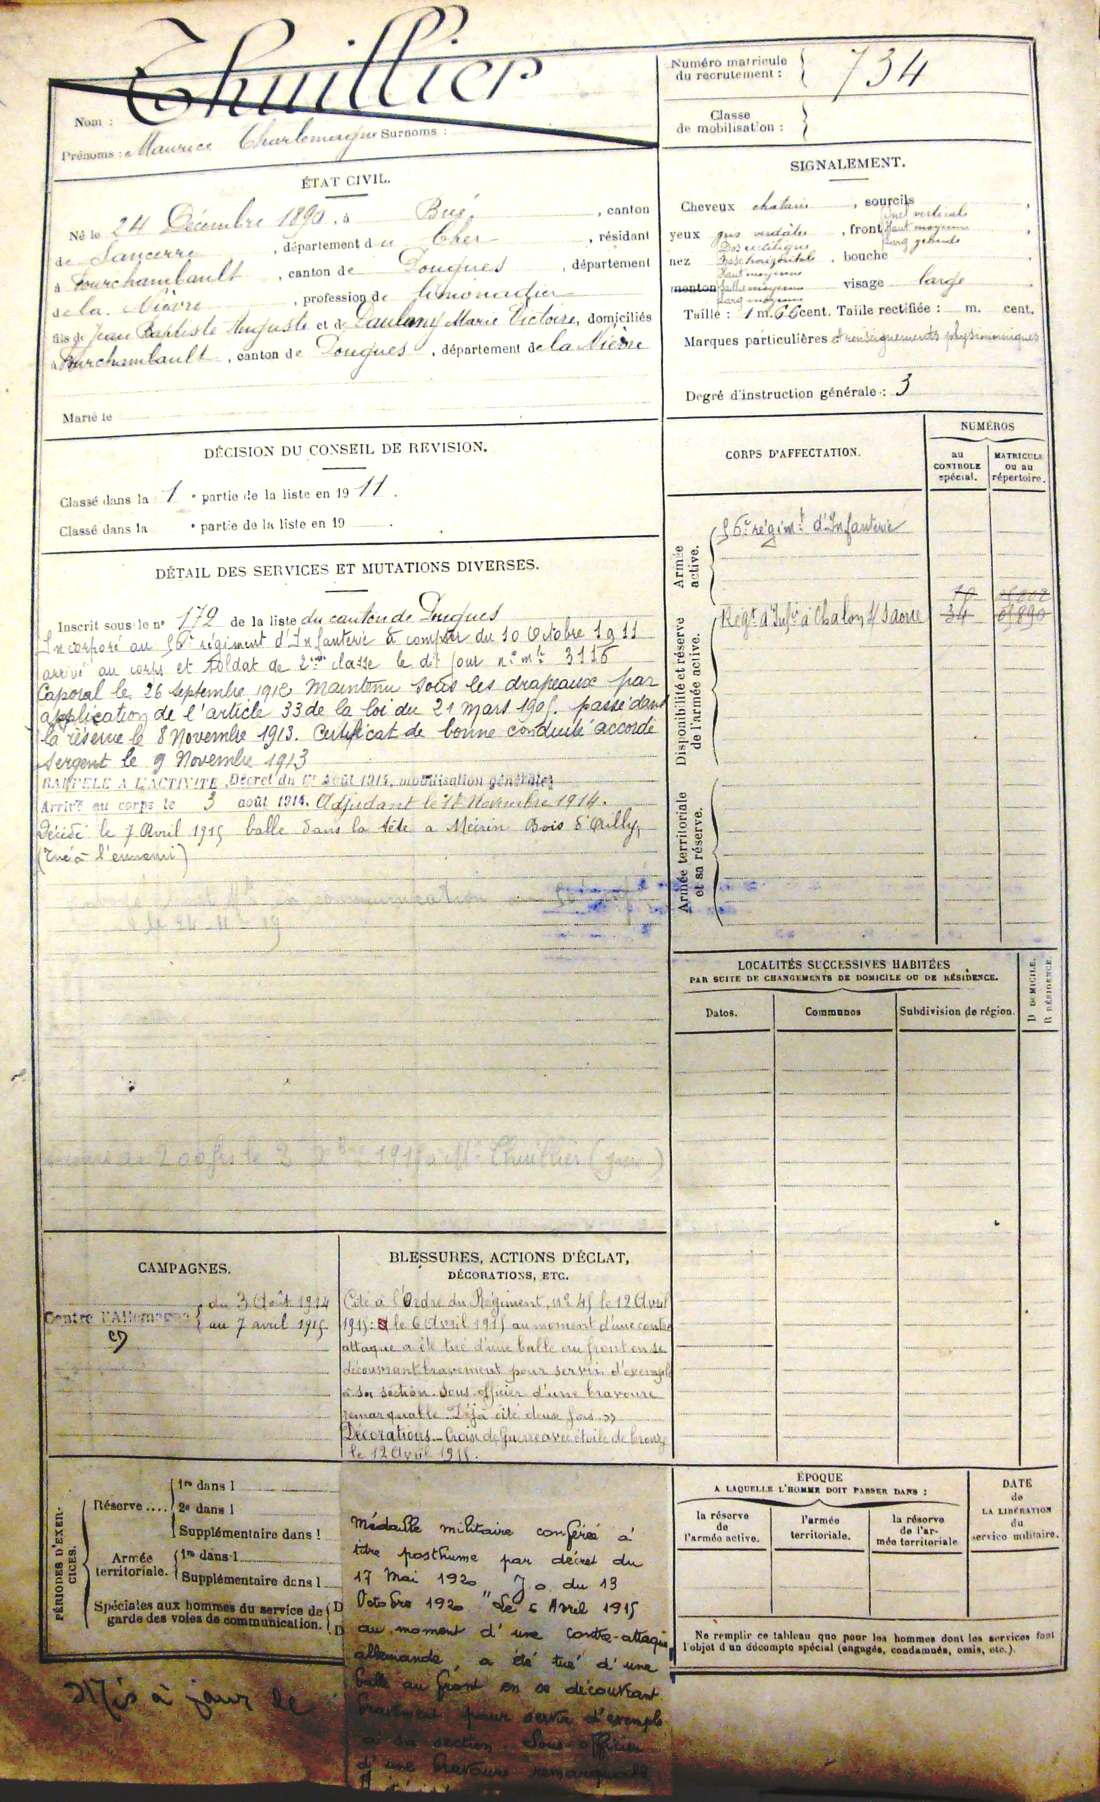 Thuillier
Nom :
Prénoms : Maurice Charlemagne Surnoms :
ÉTAT CIVIL.
Né le 24 Décembre 1890, à Bué, canton
de Sancerre, département du Cher, résidant
à Fourchambault, canton de Pougues, département
de la Nièvre, profession de limonadier
fils de Jean Baptiste Auguste et de Paulmy Marie Victoire, domiciliés
à Fourchambault, canton de Pougues, département de la Nièvre
Marié le
DÉCISION DU CONSEIL DE REVISION.
Classé dans la 1e partie de la liste en 1911.
Classé dans la e partie de la liste en 19 .
DÉTAIL DES SERVICES ET MUTATIONS DIVERSES.
Inscrit sous le n° 172 de la liste du canton de Pougues
Incorporé au 56e régiment d'Infanterie à compter du 10 Octobre 1911
arrivé au corps et soldat de 2ème classe le dit jour n° mle 3116
Caporal le 26 Septembre 1912 Maintenu sous les drapeaux par
application de l'article 33 de la loi du 21 mars 1905. passé dans
la réserve le 8 Novembre 1913. Certificat de bonne conduite accordé
Sergent le 9 Novembre 1913
RAPPELÉ A L'ACTIVITE, Décret du 1er août 1914, mobilisation générale
Arrivé au corps le 3 août 1914. Adjudant le 18 Novembre 1914.
Décédé le 7 Avril 1915 balle dans la tête a Mécrin Bois d'Ailly,
(tué à l'ennemi)
communication
le 24
200 frs le 2 1915 à Mr Thuillier (père)
CAMPAGNES.
Contre l'Allemagne { du 3 Août 1914
au 7 avril 1915
BLESSURES, ACTIONS D'ÉCLAT,
DÉCORATIONS, ETC.
Cité à l'Ordre du Régiment, n° 45 le 12 Avril
1915: le 6 Avril 1915 au moment d'une contre
attaque a été tué d'une balle au front en se
découvrant bravement pour servir d'exemple
à sa section. Sous officier d'une bravoure
remarquable. Déjà cité deux fois »
Décorations – Croix de Guerre avec étoile de bronze
le 12 Avril 1915.
Médaille militaire conférée à
titre posthume par décret du
17 Mai 1920 J.o. du 13
Octobre 1920 "Le 6 Avril 1915
au moment d'une contre-attaque
allemande a été tué d'une
balle au front en se découvrant
bravement pour servir d'exemple
à sa section. Sous-officier
d'une bravoure remarquable
PÉRIODES D'EXERCICES.
Réserve ....
1re dans l
2e dans l
Supplémentaire dans l
Armée territoriale.
1re dans l
Supplémentaire dans l
Spéciales aux hommes du service de
garde des voies de communication.
D
D
Mis à jour le
Numéro matricule
du recrutement : 734
Classe
de mobilisation :
SIGNALEMENT.
Cheveux chatain, sourcils
yeux gris verdâtre, front Incl verticale
Haut moyenne
Larg grande
nez Dos rectiligne
Base horizontale
Haut moyenne
Saillie moyenne
Larg moyenne
, bouche
menton visage large
Taille : 1 m. 66 cent. Taille rectifiée : m. cent.
Marques particulières et renseignements physionomiques
Degré d'instruction générale : 3
CORPS D'AFFECTATION.
NUMÉROS
au
CONTROLE
spécial.
MATRICULE
ou au
répertoire.
Armée
active.
56e régimt d'Infanterie
Disponibilité et réserve
de l'armée active.
Régt d'Infie à Chalon s/ Saône 34
Armée territoriale
et sa réserve.
LOCALITÉS SUCCESSIVES HABITÉES
PAR SUITE DE CHANGEMENTS DE DOMICILE OU DE RÉSIDENCE.
Dates.
Communes
Subdivision de région.
D DOMICILE.
R RÉSIDENCE.
ÉPOQUE
A LAQUELLE L'HOMME DOIT PASSER DANS :
la réserve
de
l'armée active.
l'armée
territoriale.
la réserve
de l'ar-
mée territoriale
DATE
de
LA LIBÉRATION
du
service militaire.
Ne remplir ce tableau que pour les hommes dont les services font
l'objet d'un décompte spécial (engagés, condamnés, omis, etc.).